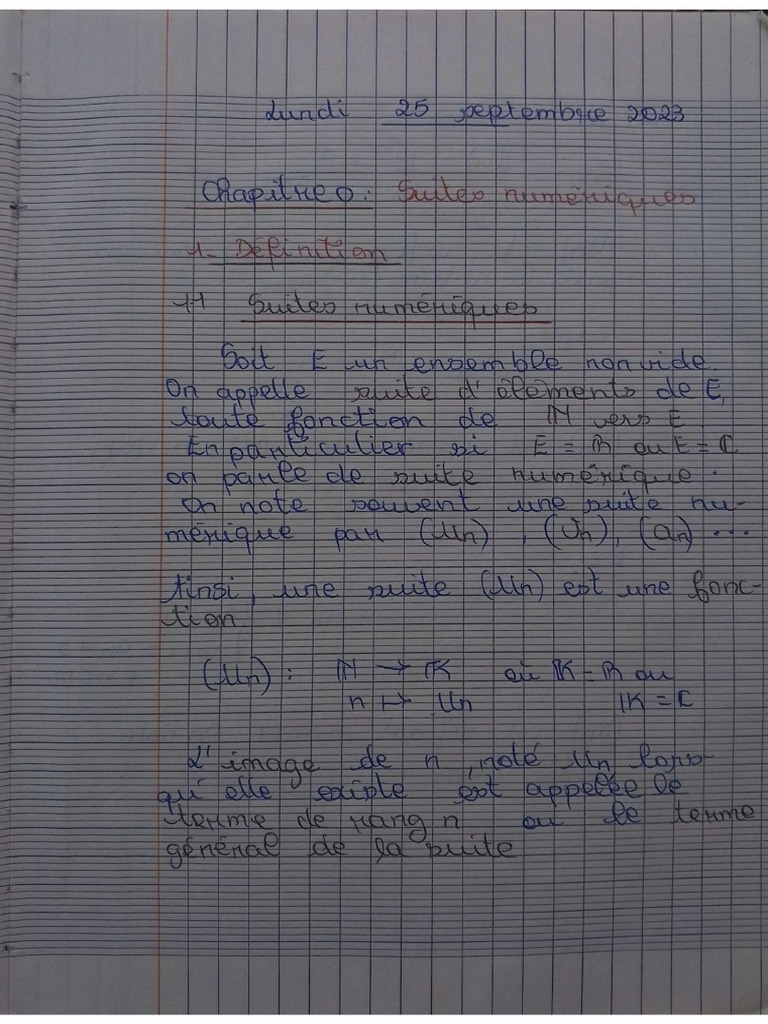 Lundi 25 septembre 2023
Chapitre 0 : Suites numériques
1- Définition
1-1 Suites numériques
Soit E un ensemble non vide.
On appelle suite d'éléments de E,
toute fonction de ℕ vers E
En particulier si E = ℝ ou E = ℂ
on parle de suite numérique.
On note souvent une suite nu-
mérique par (Un), (Vn), (an) ...
Ainsi, une suite (Un) est une fonc-
tion
(Un) : ℕ → 𝕂 où 𝕂 = ℝ ou
n ↦ Un 𝕂 = ℂ
L'image de n, noté Un lors-
qu'elle existe est appelée le
terme de rang n ou le terme
général de la suite